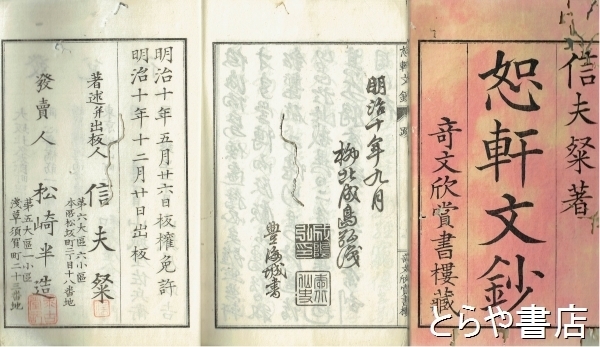 信夫粲著
恕軒文鈔
奇文欣賞書樓藏
とらや書店
恕軒文鈔
明治十年九月
柳北成島弘識
豐海城書
明治十年五月廿六日板權免許
明治十年十二月廿日出板
著述并出板人
信夫粲
第六大區六小區
本所松坂町二丁目十八番地
發賣人
松崎半造
第五大區一小區
淺草須賀町二十三番地